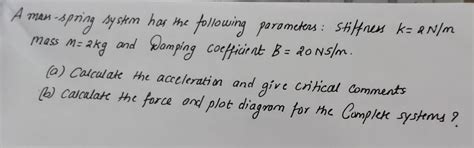 A man-spring system has the following parameters: Stiffness k= 2N/m
mass M= 2kg and Damping Coefficient B= 20 NS/m.
(a) Calculate the acceleration and give critical Comments
(b) Calculate the force and plot diagram for the Complete systems?